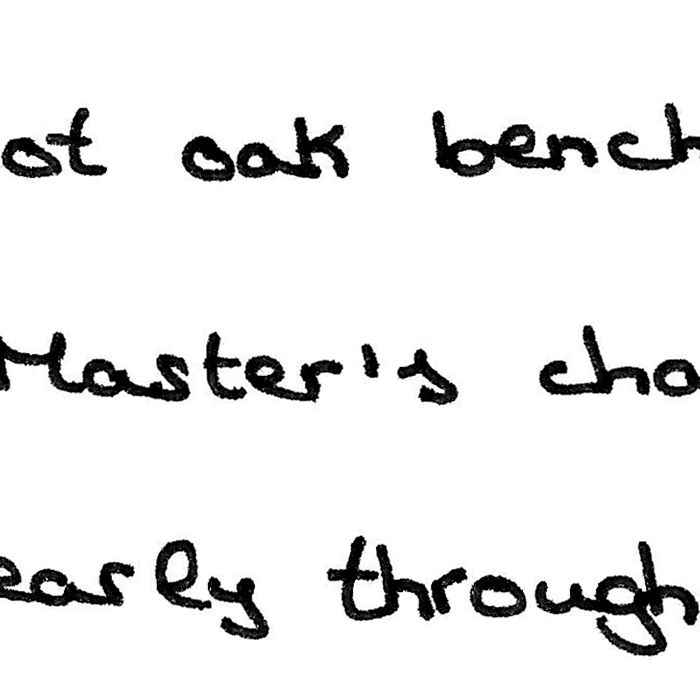 ot oak bench
Master's cha
early through